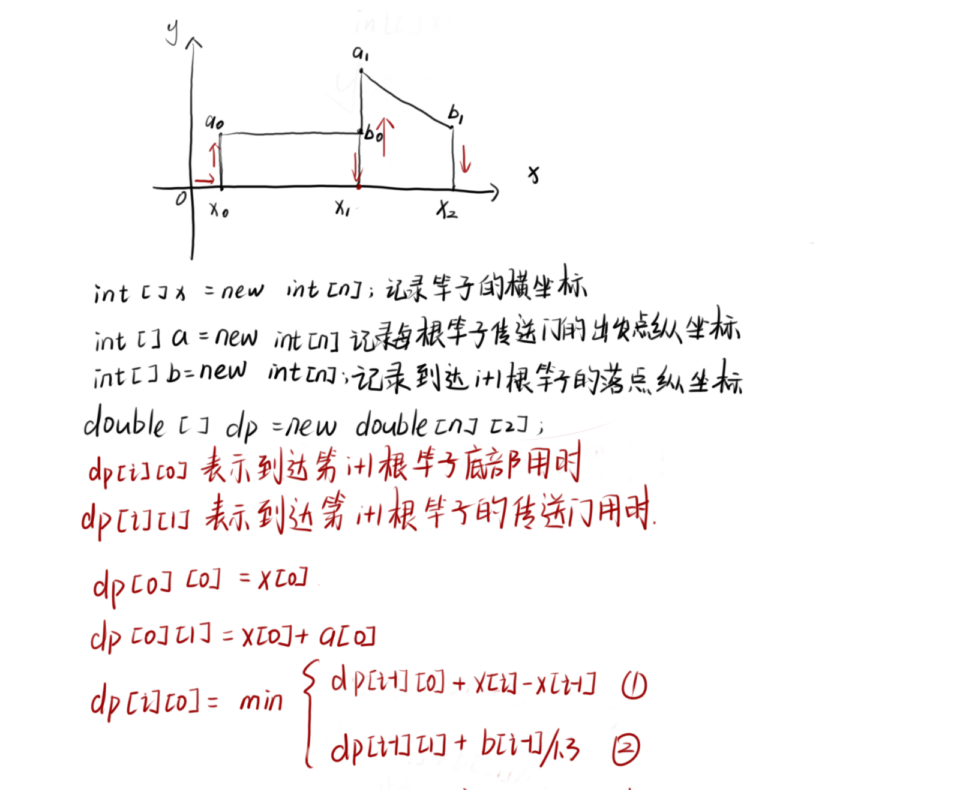 y
a₁
a₀
b₀
b₁
x
0
x₀
x₁
x₂
int []x =new int[n]; 记录竿子的横坐标
int [] a =new int[n] 记录每根竿子传送门的出发点纵坐标
int[] b=new int[n];记录到达i+1根竿子的落点纵坐标
double [] dp =new double[n][2];
dp[i][0] 表示到达第i+1根竿子底部用时
dp[i][1] 表示到达第i+1根竿子的传送门用时.
dp[0][0] = x[0]
dp[0][1] = x[0]+ a[0]
dp[i-1][0] + x[i]-x[i-1] ①
dp[i][0] = min {
dp[i-1][1] + b[i-1]/1.3 ②